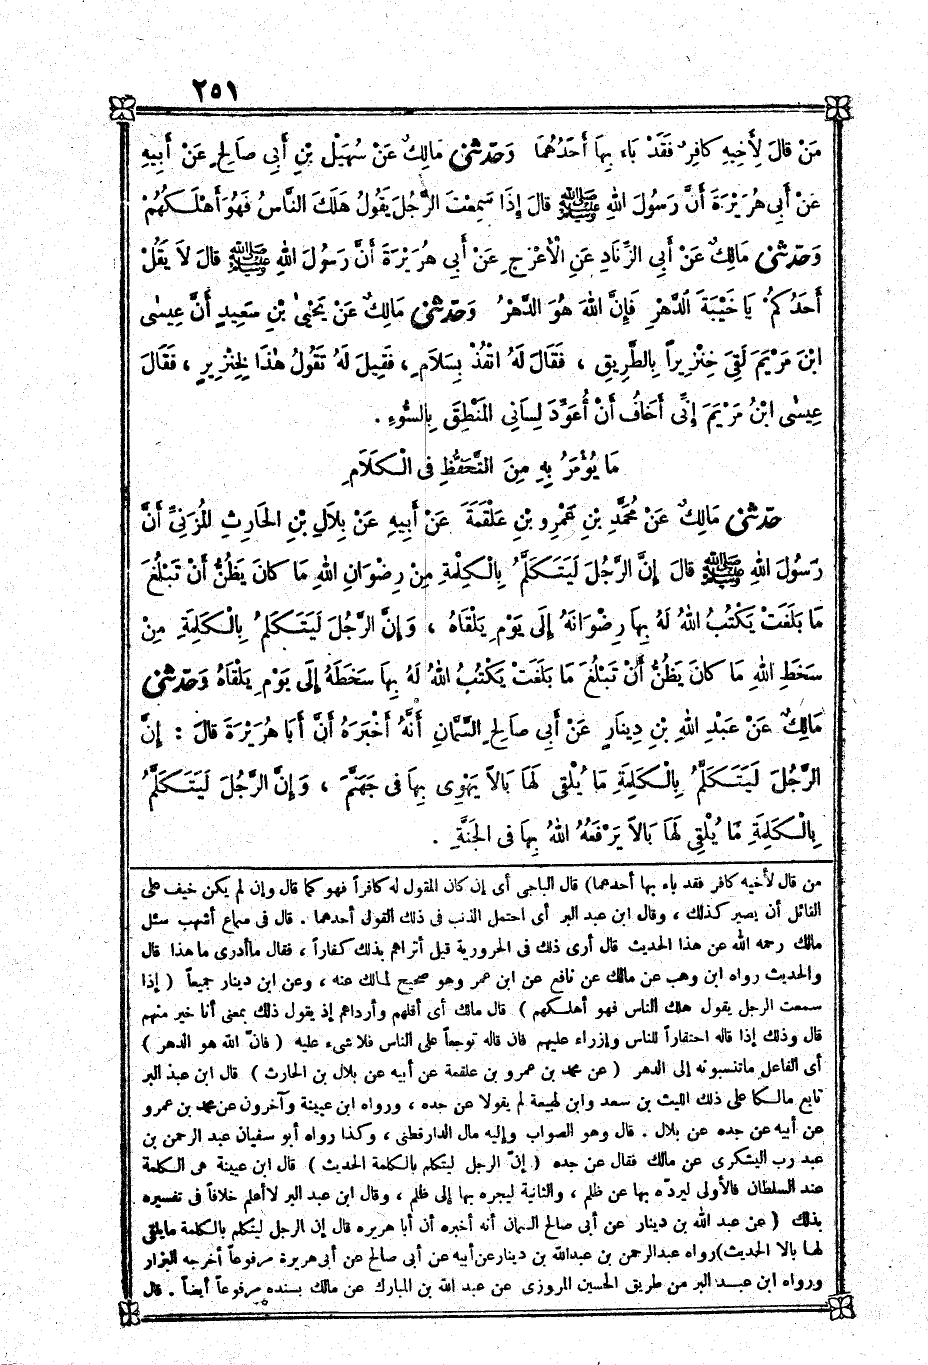 ٢٥١
مَنْ قَالَ لِأَخِيهِ كَافِرٌ فَقَدْ بَاءَ بِهَا أَحَدُهُمَا وَحَدَّثَنِي مَالِكٌ عَنْ سُهَيْلِ بْنِ أَبِي صَالِحٍ عَنْ أَبِيهِ
عَنْ أَبِي هُرَيْرَةَ أَنَّ رَسُولَ اللهِ ﷺ قَالَ إِذَا سَمِعْتَ الرَّجُلَ يَقُولُ هَلَكَ النَّاسُ فَهُوَ أَهْلَكُهُمْ
وَحَدَّثَنِي مَالِكٌ عَنْ أَبِي الزِّنَادِ عَنِ الْأَعْرَجِ عَنْ أَبِي هُرَيْرَةَ أَنَّ رَسُولَ اللهِ ﷺ قَالَ لَا يَقُلْ
أَحَدُكُمْ يَا خَيْبَةَ الدَّهْرِ فَإِنَّ اللهَ هُوَ الدَّهْرُ وَحَدَّثَنِي مَالِكٌ عَنْ يَحْيَى بْنِ سَعِيدٍ أَنَّ عِيسَى
ابْنَ مَرْيَمَ لَقِيَ خِنْزِيراً بِالطَّرِيقِ ، فَقَالَ لَهُ انْفُذْ بِسَلَامٍ ، فَقِيلَ لَهُ تَقُولُ هٰذَا لِخِنْزِيرٍ ، فَقَالَ
عِيسَى ابْنُ مَرْيَمَ إِنِّي أَخَافُ أَنْ أُعَوِّدَ لِسَانِي الْمَنْطِقَ بِالسُّوءِ .
مَا يُؤْمَرُ بِهِ مِنَ التَّحَفُّظِ فِي الْكَلَامِ
حَدَّثَنِي مَالِكٌ عَنْ مُحَمَّدِ بْنِ عَمْرِو بْنِ عَلْقَمَةَ عَنْ أَبِيهِ عَنْ بِلَالِ بْنِ الْحَارِثِ الْمُزَنِيِّ أَنَّ
رَسُولَ اللهِ ﷺ قَالَ إِنَّ الرَّجُلَ لَيَتَكَلَّمُ بِالْكَلِمَةِ مِنْ رِضْوَانِ اللهِ مَا كَانَ يَظُنُّ أَنْ تَبْلُغَ
مَا بَلَغَتْ يَكْتُبُ اللهُ لَهُ بِهَا رِضْوَانَهُ إِلَى يَوْمِ يَلْقَاهُ ، وَإِنَّ الرَّجُلَ لَيَتَكَلَّمُ بِالْكَلِمَةِ مِنْ
سَخَطِ اللهِ مَا كَانَ يَظُنُّ أَنْ تَبْلُغَ مَا بَلَغَتْ يَكْتُبُ اللهُ لَهُ بِهَا سَخَطَهُ إِلَى يَوْمِ يَلْقَاهُ وَحَدَّثَنِي
مَالِكٌ عَنْ عَبْدِ اللهِ بْنِ دِينَارٍ عَنْ أَبِي صَالِحٍ السَّمَّانِ أَنَّهُ أَخْبَرَهُ أَنَّ أَبَا هُرَيْرَةَ قَالَ : إِنَّ
الرَّجُلَ لَيَتَكَلَّمُ بِالْكَلِمَةِ مَا يُلْقِي لَهَا بَالًا يَهْوِي بِهَا فِي جَهَنَّمَ ، وَإِنَّ الرَّجُلَ لَيَتَكَلَّمُ
بِالْكَلِمَةِ مَا يُلْقِي لَهَا بَالًا يَرْفَعُهُ اللهُ بِهَا فِي الْجَنَّةِ .
من قال لأخيه كافر فقد باء بها أحدهما) قال الباجى أى إن كان المقول له كافراً فهو كما قال وإن لم يكن خيف على
القائل أن يصير كذلك ، وقال ابن عبد البر أى احتمل الذنب فى ذلك القول أحدهما . قال فى سماع أشهب سئل
مالك رحمه الله عن هذا الحديث قال أرى ذلك فى الحرورية قيل أتراهم بذلك كفاراً ، فقال ما أدرى ما هذا قال
والحديث رواه ابن وهب عن مالك عن نافع عن ابن عمر وهو صحيح لمالك عنه ، وعن ابن دينار جميعاً ( إذا
سمعت الرجل يقول هلك الناس فهو أهلكهم ) قال مالك أى أقلهم وأرداهم إذ يقول ذلك بمعنى أنا خير منهم
قال وذلك إذا قاله احتقاراً للناس وإزراء عليهم فان قاله توجعاً على الناس فلا شىء عليه ( فانّ الله هو الدهر )
أى الفاعل ماتنسبونه إلى الدهر ( عن محمد بن عمرو بن علقمة عن أبيه عن بلال بن الحارث ) قال ابن عبد البر
تابع مالكا على ذلك الليث بن سعد وابن لهيعة لم يقولا عن جده ، ورواه ابن عيينة وآخرون عن محمد بن عمرو
عن أبيه عن جده عن بلال . قال وهو الصواب وإليه مال الدارقطنى ، وكذا رواه أبو سفيان عبد الرحمن بن
عبد رب اليشكرى عن مالك فقال عن جده ( إنّ الرجل ليتكلم بالكلمة الحديث ) قال ابن عيينة هى الكلمة
عند السلطان فالأولى ليردّه بها عن ظلم ، والثانية ليجره بها إلى ظلم ، وقال ابن عبد البر لا أعلم خلافاً فى تفسيره
بذلك ( عن عبد الله بن دينار عن أبى صالح السمان أنه أخبره أن أبا هريره قال إن الرجل ليتكلم بالكلمة مايلقى
لها بالا الحديث) رواه عبدالرحمن بن عبدالله بن دينار عن أبيه عن أبى صالح عن أبى هريرة مرفوعاً أخرجه البزار
ورواه ابن عبد البر من طريق الحسين المروزى عن عبد الله بن المبارك عن مالك بسنده مرفوعاً أيضاً . قال